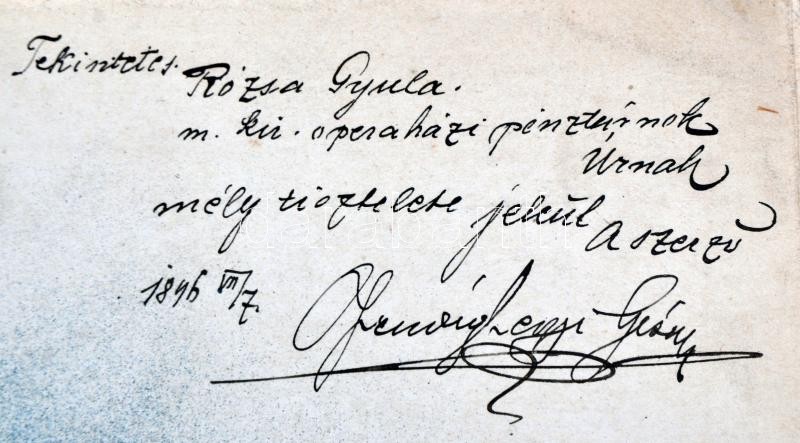 Tekintetes.
Rózsa Gyula.
m. kir. operaházi pénztárnok
Úrnak
mély tisztelete jeléül
A szerző
1896 VII/7.